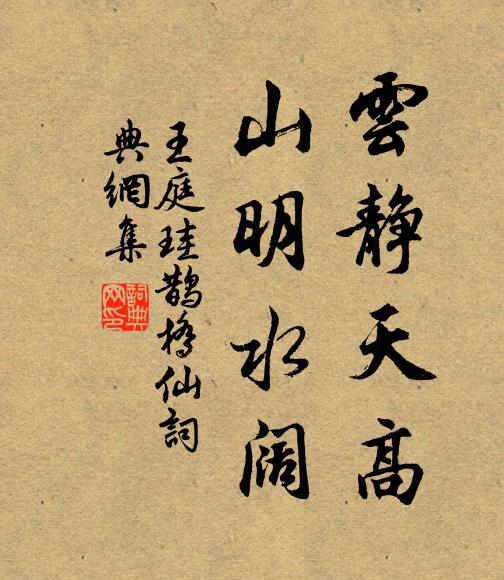 雲靜天高
山明水阔
王庭珪鵲橋仙詞
典網集
詞典網印